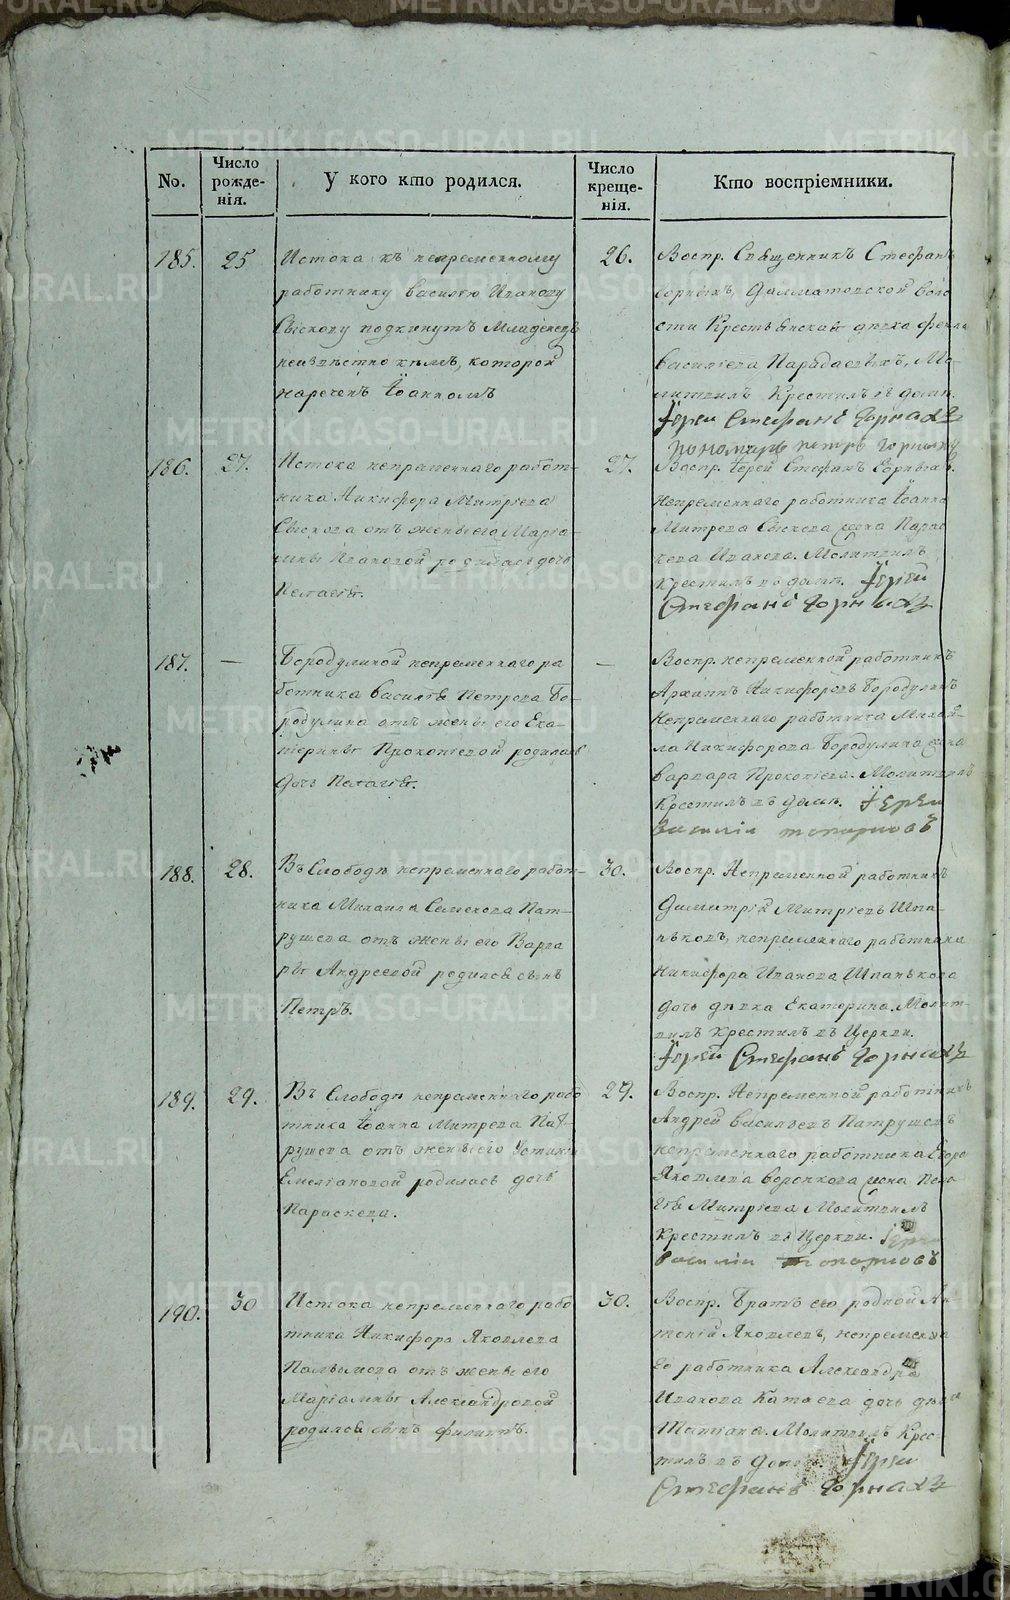 No.
Число рожде-
нія.
У кого кто родился.
Число креще-
нія.
Кто воспріемники.
185.
25
Истока къ непременному
работнику Василью Иванову
Сыскову подкинутъ Младенецъ
неизвѣстно кѣмъ, которой
нареченъ Іоанномъ
26.
Воспр. Священникъ Стефанъ
Горныхъ, Далматовской воло
сти Крестьянская дѣвка Фекла
Васильева Молитвилъ Крестилъ въ домѣ.
Іерей Стефанъ Горныхъ
пономарь петръ
186.
27.
Истока непременнаго работ-
ника Никифора Митріева
Сыскова отъ жены его Маріа-
мны Ивановой родилась дочь
Пелагія.
27.
Воспр. Іерей Стефанъ Горныхъ.
непременнаго работника Іоанна
Митрева Сыскова жена Парас
кева Иванова. Молитвилъ
Крестилъ въ домѣ. Іерей
Стефанъ Горныхъ
187.
—
Бородулиной непременнаго ра
ботника Василья Петрова Бо-
родулина отъ жены его Ека-
терины Прокопіевой родилась
дочь Пелагія.
—
Воспр. непременной работникъ
Архипъ Никифоровъ Бородулинъ
непременнаго работника Михай-
ла Никифорова Бородулина жена
Варвара Прокопіева. Молитвилъ
Крестилъ въ домѣ. Іерей
Василіи топорковъ
188.
28.
Въ Слободѣ непременнаго работ-
ника Михаила Семенова Пат-
рушева отъ жены его Варва
ры Андреевой родился сынъ
Петръ.
30.
Воспр. Непременной работникъ
Димитрій Митріевъ Шпа-
ньковъ, непременнаго работника
Никифора Иванова Шпанькова
дочь дѣвка Екатерина. Молит-
вилъ Крестилъ въ Церкви.
Іерей Стефанъ Горныхъ
189.
29.
Въ Слободѣ непременнаго рабо
тника Іоанна Митрева Пат-
рушева отъ жены его Устиньи
Емельяновой родилась дочь
Параскева.
29.
Воспр. Непременной работникъ
Андрей Васильевъ Патрушевъ
непременнаго работника Егора
Яковлева Воронкова жена Пела
гія Митріева Молитвилъ
Крестилъ въ Церкви. Іерей
Василіи топорковъ
190.
30
Истока непременнаго рабо
тника Никифора Яковлева
отъ жены его
Маріамны Александровой
родился сынъ Филиппъ.
30.
Воспр. Братъ его родной Ан
тоній Яковлевъ, непременна
го работника Александра
Иванова Катаева дочь дѣвка
Татіана. Молитвилъ Крес-
тилъ въ домѣ. Іерей
Стефанъ Горныхъ
METRIKI.GASO-URAL.RU